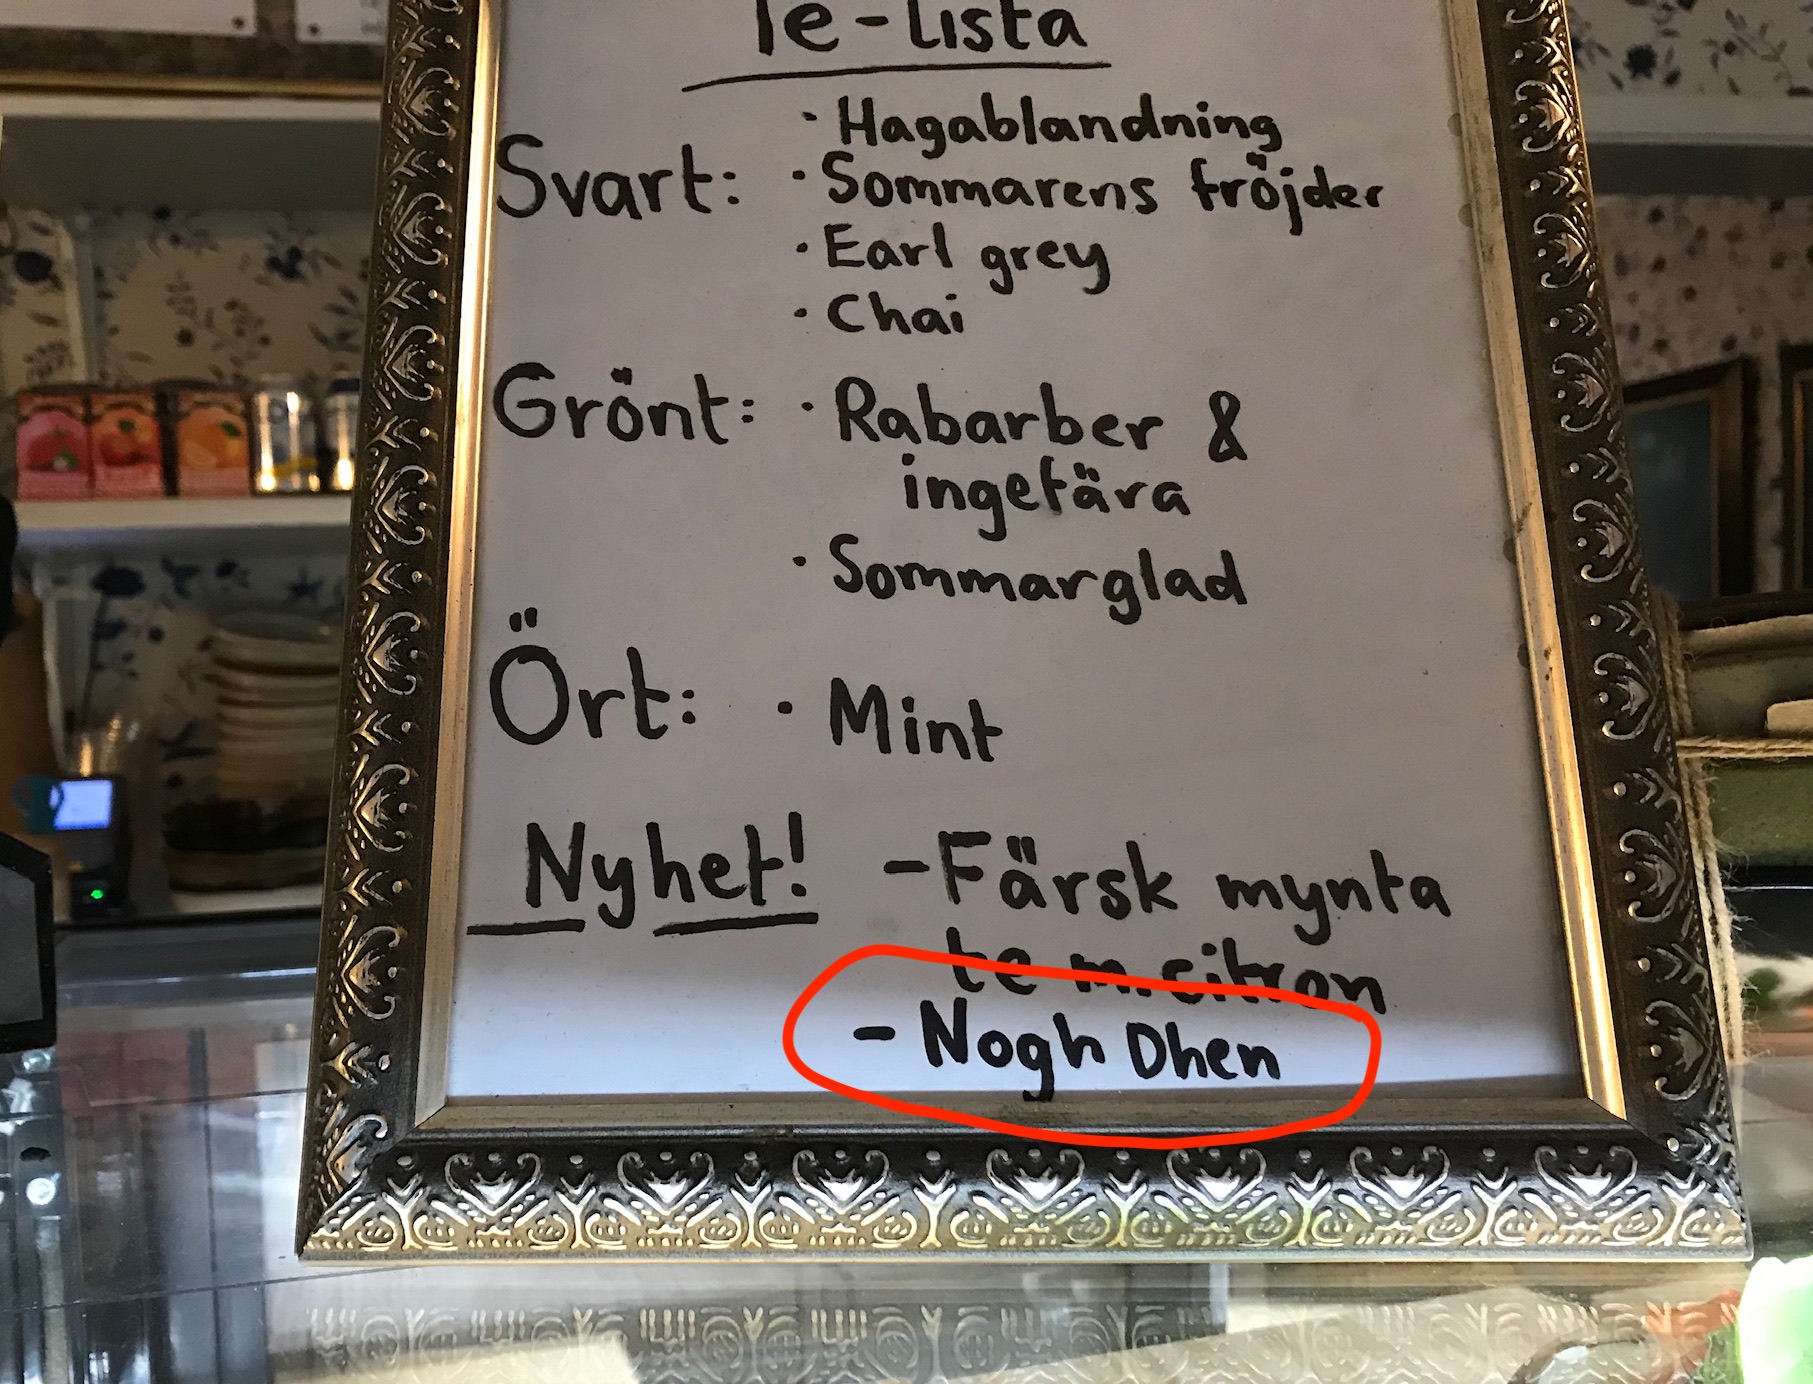 Te-Lista
· Hagablandning
Svart: · Sommarens fröjder
· Earl grey
· Chai
Grönt: · Rabarber &
ingefära
· Sommarglad
Ört: · Mint
Nyhet! - Färsk mynta
te m. citron
- Nogh Dhen